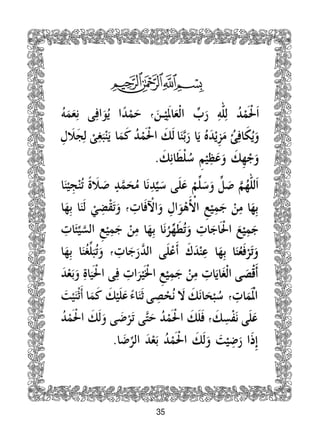 بِسْمِ اللهِ الرَّحْمٰنِ الرَّحِيْمِ
اَلْحَمْدُ لِلّٰهِ رَبِّ الْعَالَمِيْنَ، حَمْدًا يُوَافِى نِعَمَهُ
وَيُكَافِئُ مَزِيْدَهُ يَا رَبَّنَا لَكَ الْحَمْدُ كَمَا يَنْبَغِىْ لِجَلَالِ
وَجْهِكَ وَعَظِيْمِ سُلْطَانِكَ.
اَللّٰهُمَّ صَلِّ وَسَلِّمْ عَلَى سَيِّدِنَا مُحَمَّدٍ صَلَاةً تُنْجِيْنَا
بِهَا مِنْ جَمِيْعِ الْأَهْوَالِ وَالْآفَاتِ، وَتَقْضِيْ لَنَا بِهَا
جَمِيْعَ الْحَاجَاتِ وَتُطَهِّرُنَا بِهَا مِنْ جَمِيْعِ السَّيِّئَاتِ
وَتَرْفَعُنَا بِهَا عِنْدَكَ أَعْلَى الدَّرَجَاتِ، وَتُبَلِّغُنَا بِهَا
أَقْصَى الْغَايَاتِ مِنْ جَمِيْعِ الْخَيْرَاتِ فِى الْحَيَاةِ وَبَعْدَ
الْمَمَاتِ، سُبْحَانَكَ لَا نُحْصِى ثَنَاءً عَلَيْكَ كَمَا أَثْنَيْتَ
عَلَى نَفْسِكَ، فَلَكَ الْحَمْدُ حَتَّى تَرْضَى وَلَكَ الْحَمْدُ
إِذَا رَضِيْتَ وَلَكَ الْحَمْدُ بَعْدَ الرِّضَا.
35